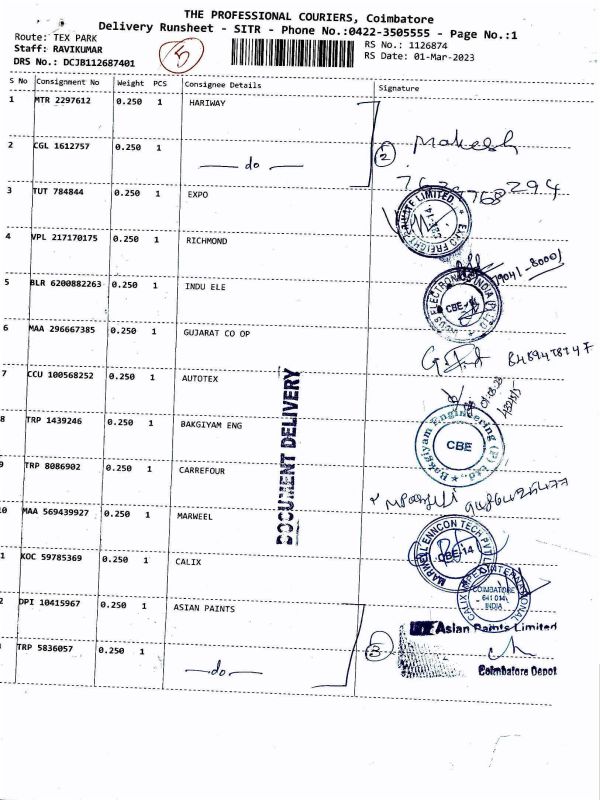 THE PROFESSIONAL COURIERS, Coimbatore
Delivery Runsheet - SITR - Phone No.:0422-3505555 - Page No.:1
Route: TEX PARK
RS No.: 1126874
Staff: RAVIKUMAR
5
RS Date: 01-Mar-2023
DRS No.: DCJB112687401
S No Consignment No Weight PCS Consignee Details Signature
1 MTR 2297612 0.250 1 HARIWAY
2 CGL 1612757 0.250 1 do
2
3 TUT 784844 0.250 1 EXPO
EXPO FREIGHT PRIVATE LIMITED
4 VPL 217170175 0.250 1 RICHMOND
5 BLR 6200882263 0.250 1 INDU ELE
CBE-14
6 MAA 296667385 0.250 1 GUJARAT CO OP
7 CCU 100568252 0.250 1 AUTOTEX
8 TRP 1439246 0.250 1 BAKGIYAM ENG
Bakgiyam Engineering (P) Ltd.,
CBE
DOCUMENT DELIVERY
9 TRP 8086902 0.250 1 CARREFOUR
10 MAA 569439927 0.250 1 MARWEEL
MARWELL ENNCON TECH PVT
CBE-14
1 KOC 59785369 0.250 1 CALIX
CALIX IMPEX INTERNATIONAL
COIMBATORE
641 014
INDIA
2 DPI 10415967 0.250 1 ASIAN PAINTS
Asian Paints Limited
3
TRP 5836057 0.250 1 do
Coimbatore Depot